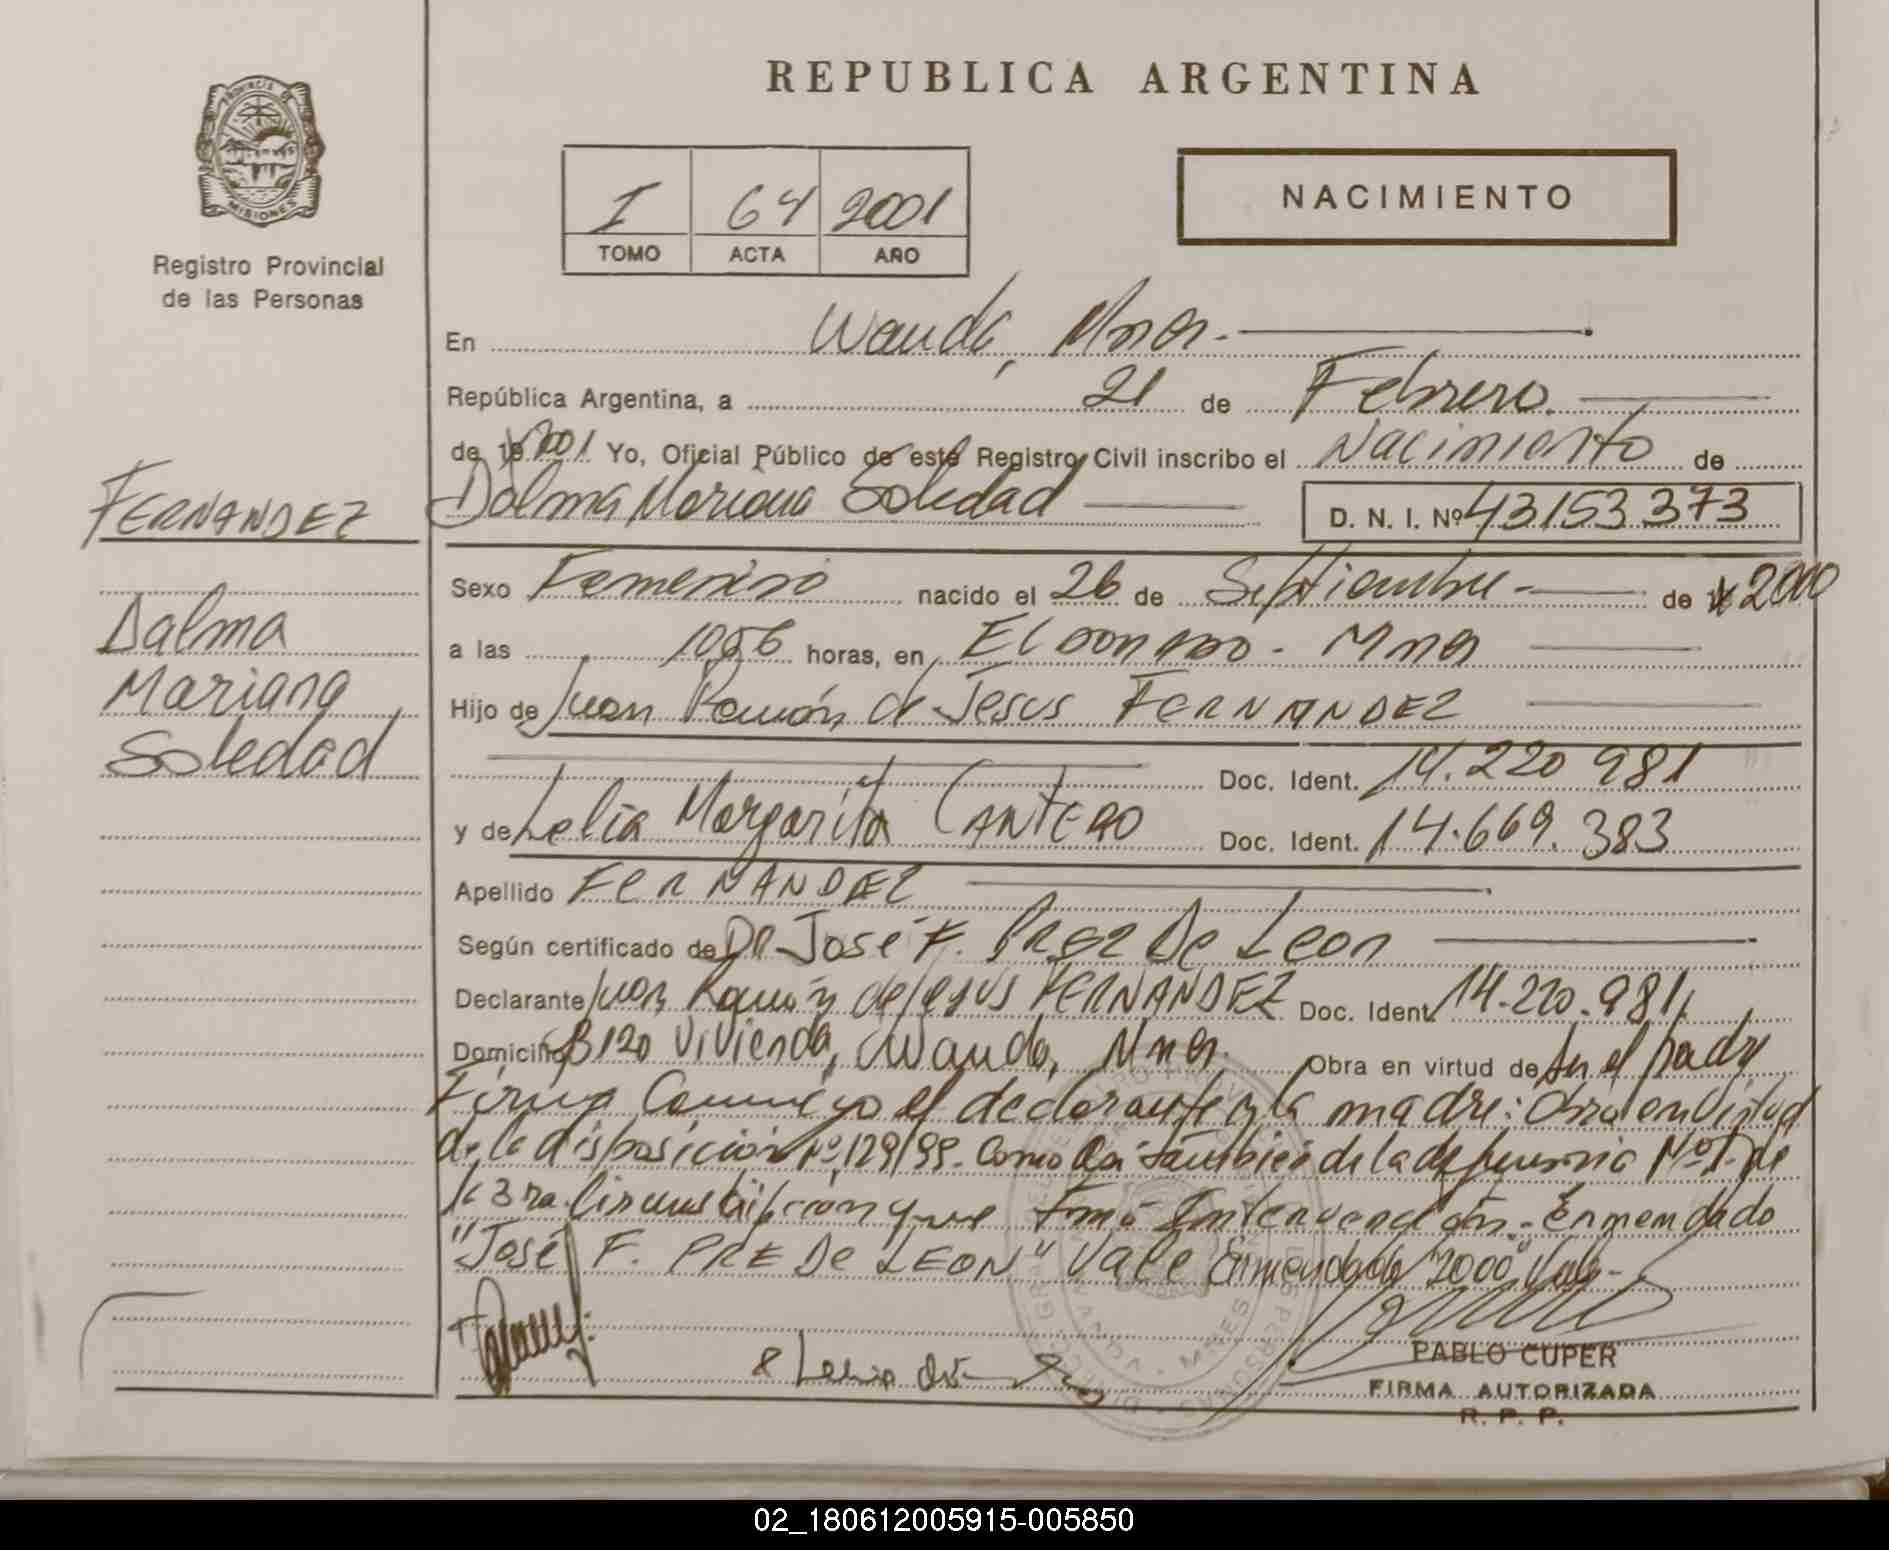 REPUBLICA ARGENTINA
PROVINCIA DE
MISIONES
Registro Provincial
de las Personas
I 64 2001
TOMO ACTA AÑO
NACIMIENTO
En Wanda, Mnes.
República Argentina, a 21 de Febrero.
de 2001 Yo, Oficial Público de este Registro Civil inscribo el Nacimiento de
Dalma Mariana Soledad D. N. I. Nº 43153373
FERNANDEZ
Dalma
Mariana
Soledad
Sexo Femenino nacido el 26 de Septiembre de 2000
a las 1056 horas, en ELDORADO - Mnes
Hijo de Juan Ramón de Jesus FERNANDEZ
Doc. Ident. 14.220 981
y de Lelia Margarita CANTERO Doc. Ident. 14.669.383
Apellido FERNANDEZ
Según certificado de DR José F. PREZ De Leon
Declarante Juan Ramón de Jesus FERNANDEZ Doc. Ident. 14.220.981
Domicilio B 120 Vivienda, Wanda, Mnes. Obra en virtud de Ser el padre
Firma Conmigo el declarante y la madre: Obra en Virtud
de la disposición Nº 129/99. Como así también de la defensoria Nº 1 de
la 3ra. Circunscripción que Tomó Intervención. Enmendado
"José F. PRE De LEON" Vale Enmendado "2000" Vale-
PABLO CUPER
FIRMA AUTORIZADA
R. P. P.
02_180612005915-005850